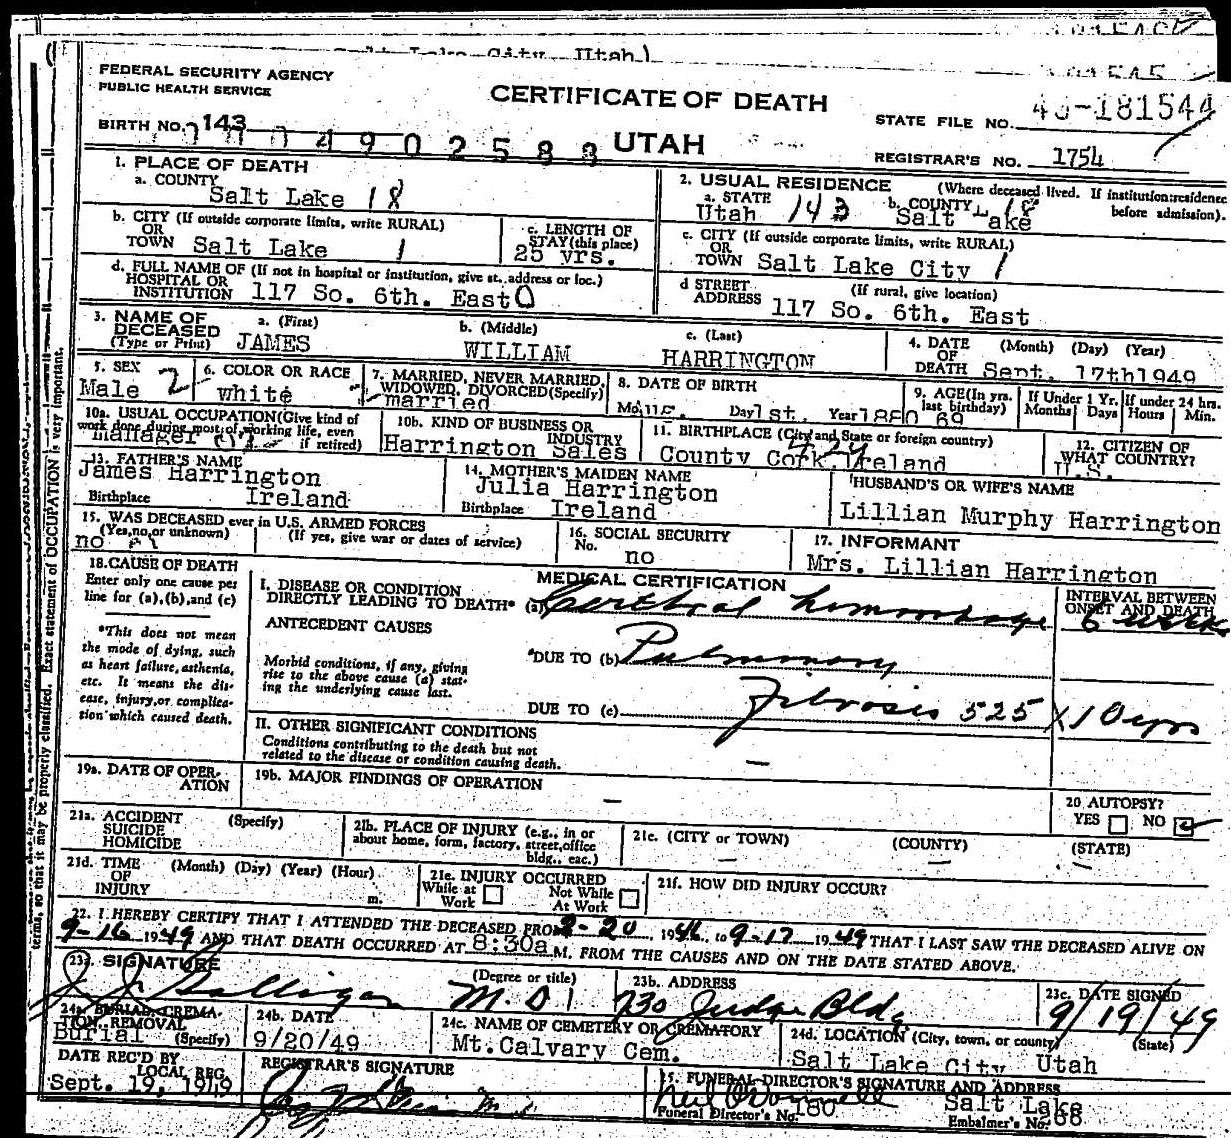 Salt Lake City, Utah)
FEDERAL SECURITY AGENCY
PUBLIC HEALTH SERVICE
CERTIFICATE OF DEATH
STATE FILE NO. 49-181544
BIRTH NO. 143
UTAH
REGISTRAR'S NO. 1754
1. PLACE OF DEATH
a. COUNTY
Salt Lake 18
2. USUAL RESIDENCE (Where deceased lived. If institution:residence before admission).
a. STATE Utah 143 b. COUNTY Salt Lake 18
b. CITY (If outside corporate limits, write RURAL)
OR
TOWN Salt Lake 1
c. LENGTH OF STAY (this place)
25 yrs.
c. CITY (If outside corporate limits, write RURAL)
OR
TOWN Salt Lake City 1
d. FULL NAME OF (If not in hospital or institution, give st. address or loc.)
HOSPITAL OR
INSTITUTION 117 So. 6th. East 0
d STREET ADDRESS (If rural, give location)
117 So. 6th. East
3. NAME OF DECEASED
(Type or Print)
a. (First) JAMES
b. (Middle) WILLIAM
c. (Last) HARRINGTON
4. DATE OF DEATH (Month) (Day) (Year)
Sept. 17th1949
5. SEX
Male 2
6. COLOR OR RACE
white
7. MARRIED, NEVER MARRIED, WIDOWED, DIVORCED(Specify)
married
8. DATE OF BIRTH
Day 1st. Year 1880
9. AGE(In yrs. last birthday)
69
If Under 1 Yr. Months Days
If under 24 hrs. Hours Min.
10a. USUAL OCCUPATION(Give kind of work done during most of working life, even if retired)
manager
10b. KIND OF BUSINESS OR INDUSTRY
Harrington Sales
11. BIRTHPLACE (City and State or foreign country)
County Cork, Ireland
12. CITIZEN OF WHAT COUNTRY?
U.S.
13. FATHER'S NAME
James Harrington
Birthplace Ireland
14. MOTHER'S MAIDEN NAME
Julia Harrington
Birthplace Ireland
HUSBAND'S OR WIFE'S NAME
Lillian Murphy Harrington
15. WAS DECEASED ever in U.S. ARMED FORCES
(Yes,no,or unknown) (If yes, give war or dates of service)
no
16. SOCIAL SECURITY
No. no
17. INFORMANT
Mrs. Lillian Harrington
18. CAUSE OF DEATH
Enter only one cause per line for (a),(b),and (c)
*This does not mean the mode of dying, such as heart failure, asthenia, etc. It means the disease, injury,or complication which caused death.
MEDICAL CERTIFICATION
INTERVAL BETWEEN ONSET AND DEATH
I. DISEASE OR CONDITION DIRECTLY LEADING TO DEATH* (a) Cerebral hemorrhage 6 weeks
ANTECEDENT CAUSES
Morbid conditions, if any, giving rise to the above cause (a) stating the underlying cause last.
*DUE TO (b) Pulmonary
DUE TO (c) Fibrosis 525 X 10 yrs
II. OTHER SIGNIFICANT CONDITIONS
Conditions contributing to the death but not related to the disease or condition causing death. —
19a. DATE OF OPERATION
19b. MAJOR FINDINGS OF OPERATION
—
20 AUTOPSY?
YES NO
21a. ACCIDENT SUICIDE HOMICIDE (Specify)
21b. PLACE OF INJURY (e.g., in or about home, form, factory, street,office bldg., eac.)
21c. (CITY or TOWN) (COUNTY) (STATE)
— — —
21d. TIME OF INJURY (Month) (Day) (Year) (Hour) m.
21e. INJURY OCCURRED
While at Work Not While At Work
21f. HOW DID INJURY OCCUR?
22. I HEREBY CERTIFY THAT I ATTENDED THE DECEASED FROM 8-20 1946, to 9-17 1949 THAT I LAST SAW THE DECEASED ALIVE ON
9-16 1949 AND THAT DEATH OCCURRED AT 8:30a M. FROM THE CAUSES AND ON THE DATE STATED ABOVE.
23a. SIGNATURE (Degree or title)
Galligan M.D.
23b. ADDRESS
730 Judge Bldg
23c. DATE SIGNED
9/19/49
24a. BURIAL, CREMATION, REMOVAL (Specify)
Burial
24b. DATE
9/20/49
24c. NAME OF CEMETERY OR CREMATORY
Mt.Calvary Cem.
24d. LOCATION (City, town, or county) (State)
Salt Lake City Utah
DATE REC'D BY LOCAL REG.
Sept. 19, 1949
REGISTRAR'S SIGNATURE
FUNERAL DIRECTOR'S SIGNATURE AND ADDRESS
Neil O'Donnell Salt Lake
Funeral Director's No. 180 Embalmer's No.
Exact statement of OCCUPATION is very important.
terms, so that it may be properly classified.